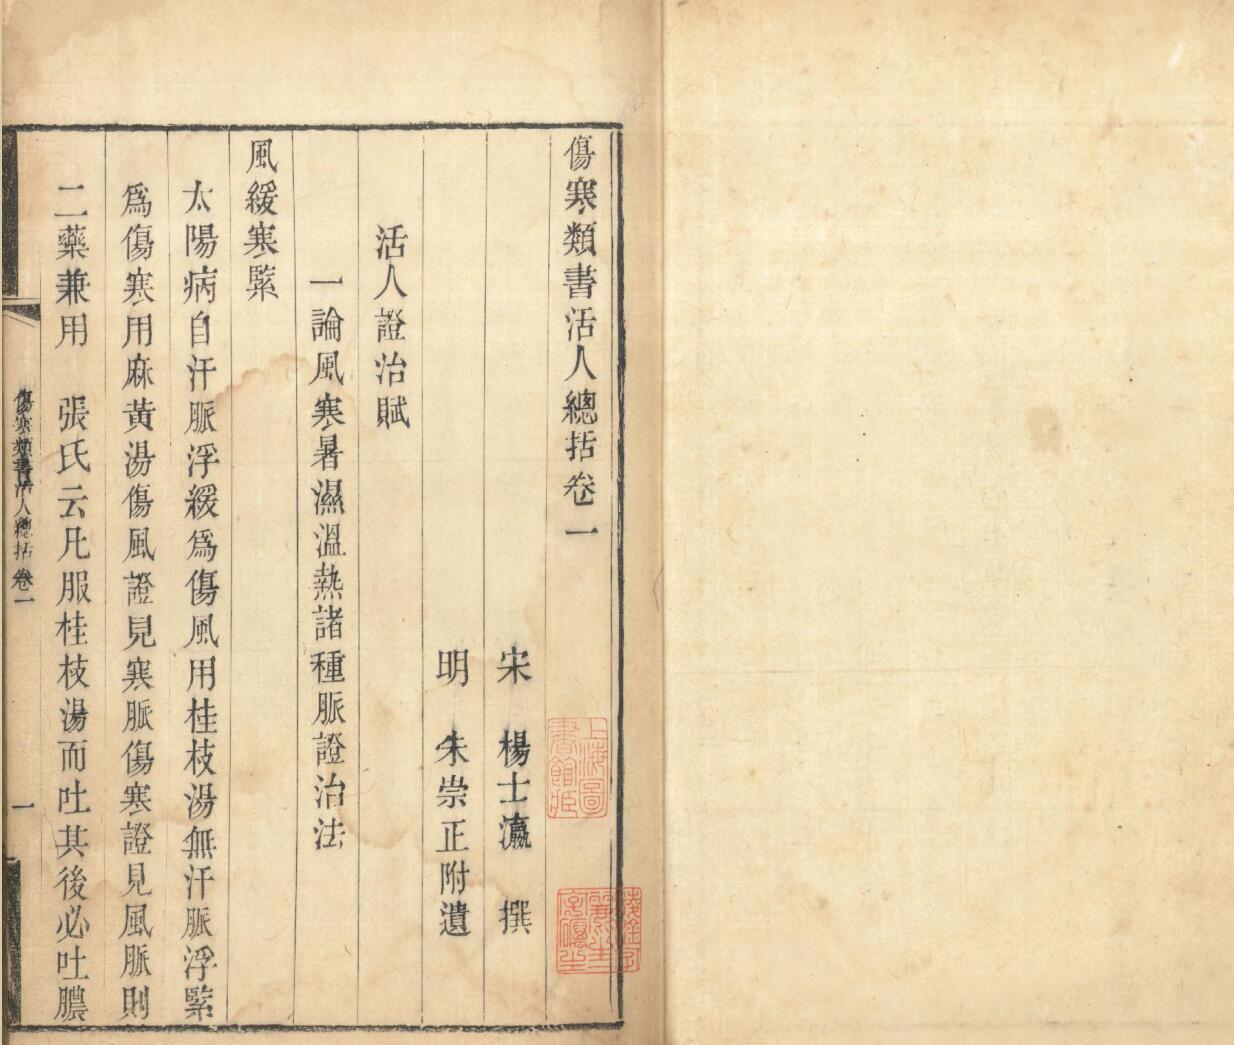 傷寒類書活人總括卷一
宋 楊士瀛 撰
明 朱崇正附遺
活人證治賦
一論風寒暑濕溫熱諸種脈證治法
風緩寒緊
太陽病自汗脈浮緩爲傷風用桂枝湯無汗脈浮緊
爲傷寒用麻黃湯傷風證見寒脈傷寒證見風脈則
二藥兼用 張氏云凡服桂枝湯而吐其後必吐膿
傷寒類書活人總括卷一
一
上海圖
書館藏